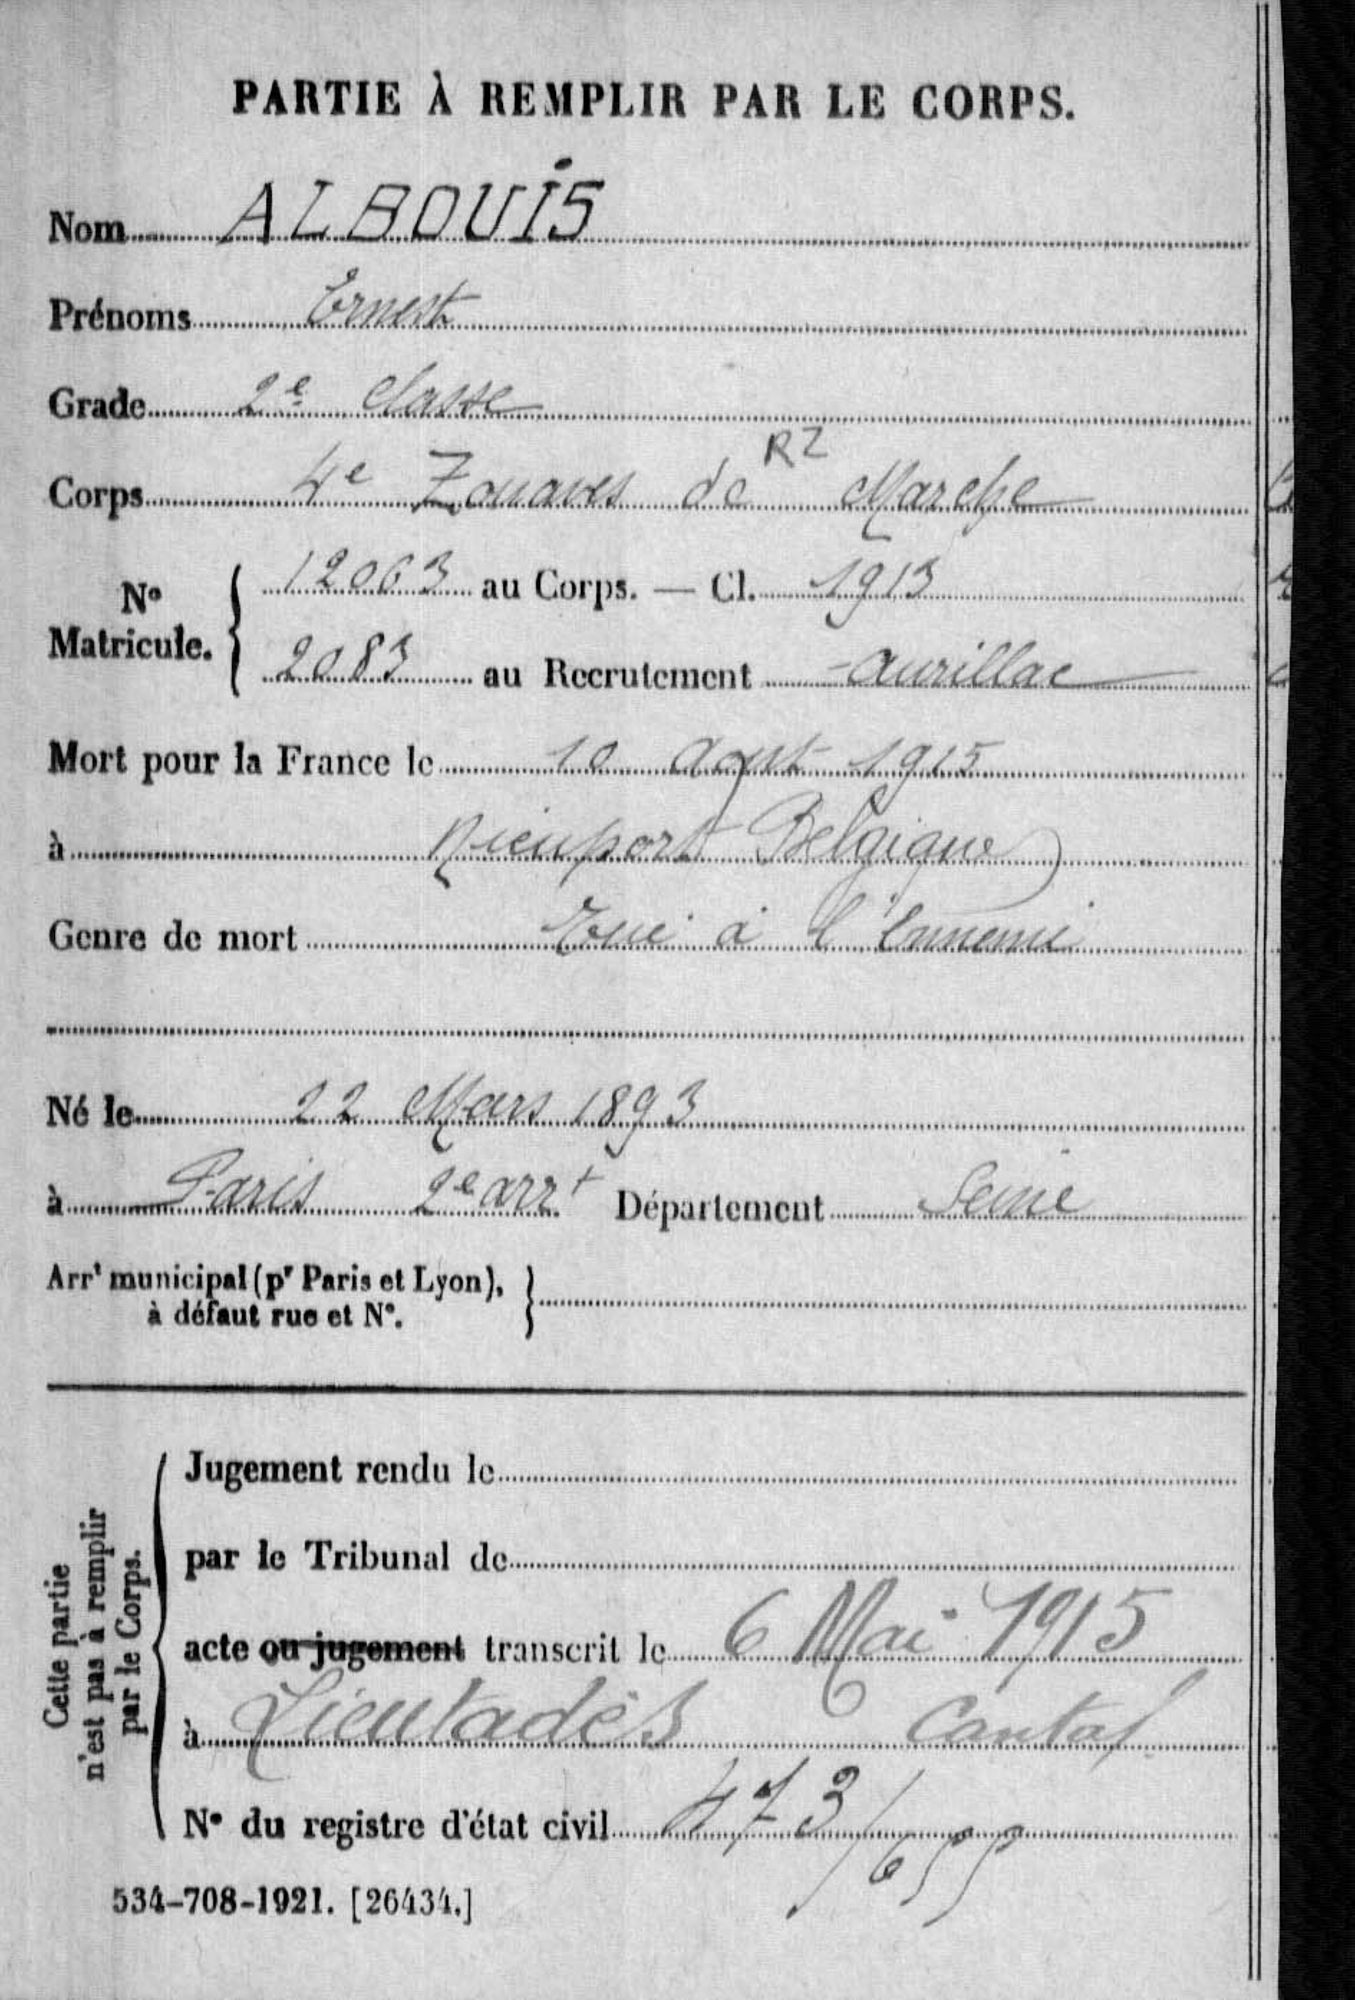 PARTIE À REMPLIR PAR LE CORPS.
Nom ALBOUIS
Prénoms Ernest
Grade 2e classe
RZ
Corps 4e Zouaves de Marche
No Matricule. 12063 au Corps. — Cl. 1913
2083 au Recrutement Aurillac
Mort pour la France le 10 Aout 1915
à Nieuport Belgique
Genre de mort Tué à l'Ennemi
Né le 22 Mars 1893
à Paris 2e arrt Département Seine
Arrt municipal (pr Paris et Lyon),
à défaut rue et No.
Cette partie
n'est pas à remplir
par le Corps.
Jugement rendu le
par le Tribunal de
acte ou jugement transcrit le 6 Mai 1915
à Lieutadès Cantal
No du registre d'état civil 473/655
534-708-1921. [26434.]